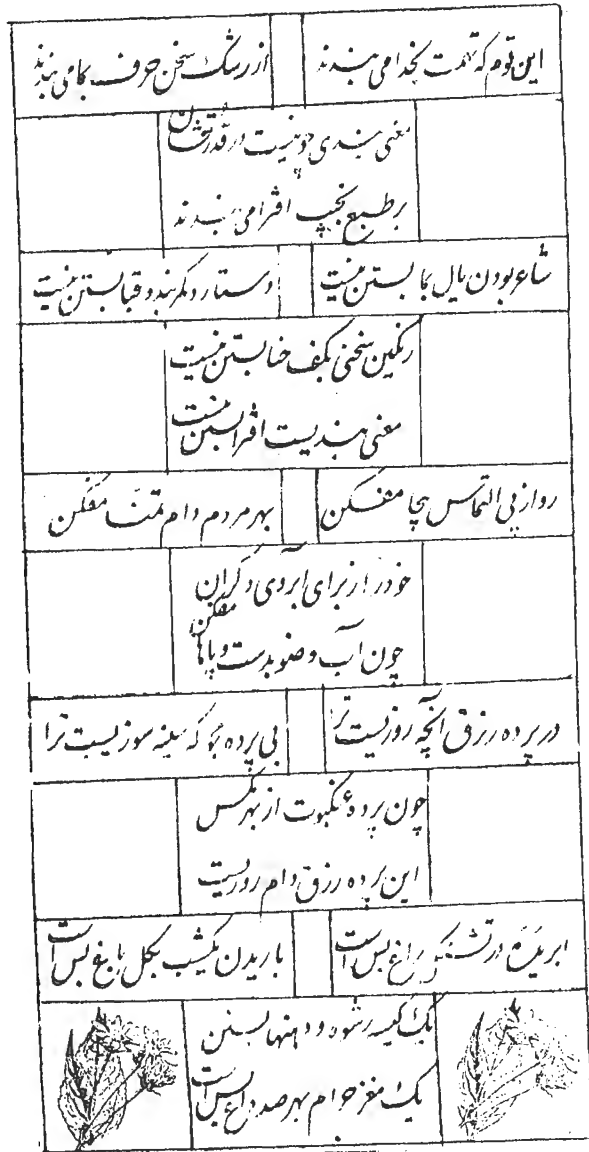 این قوم که تهمت بخدا می بندند از رشک سخن حرف بما می بندند
معنی بندی چو نیست در قدرتشان
بر طبع نجیب افترا می بندند
شاعر بودن یال بما بستن نیست دستار و کمربند و قبا بستن نیست
رنگین سخنی بکف حنا بستن نیست
معنی بندیست افترا بستن نیست
رو از پی التماس بیجا مفکن بهر مردم دام تمنا مفکن
خود را ز برای آبروی دگران
چون آب وضو بدست و پاها مفکن
در پرده رزق آنچه روزیست ترا بی پرده بگو که سینه سوزیست ترا
چون پردهٔ عنکبوت از بهر مگس
این پرده رزق دام روزیست
ابر در باغ بس است باریدن یکشب بگل باغ بس است
یک کیسه رشوه و دهنها بستن
یک مغز حرام بهر صد زاغ بس است